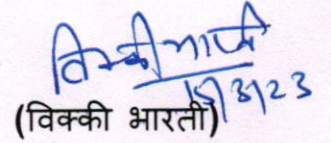 विक्की भारती
15/3/23
(विक्की भारती)